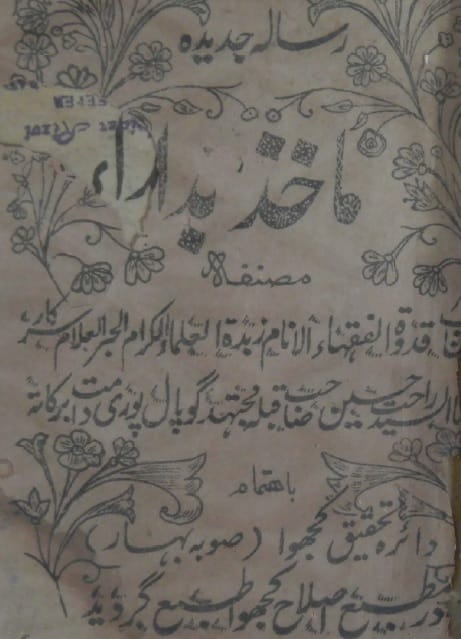 رسالہ جدیدہ
ماخذ بداراء
مصنفہ
قدوۃ الفقہاء الانام زبدۃ العلماء الکرام الحبر العلام سرکار
السید راحت حسین صاحب قبلہ مجتہد گوپال پوری دامت برکاتہ
باہتمام
دائرہ تحقیق کھجوا (صوبہ بہار)
در مطبع اصلاح کھجوا طبع گردید